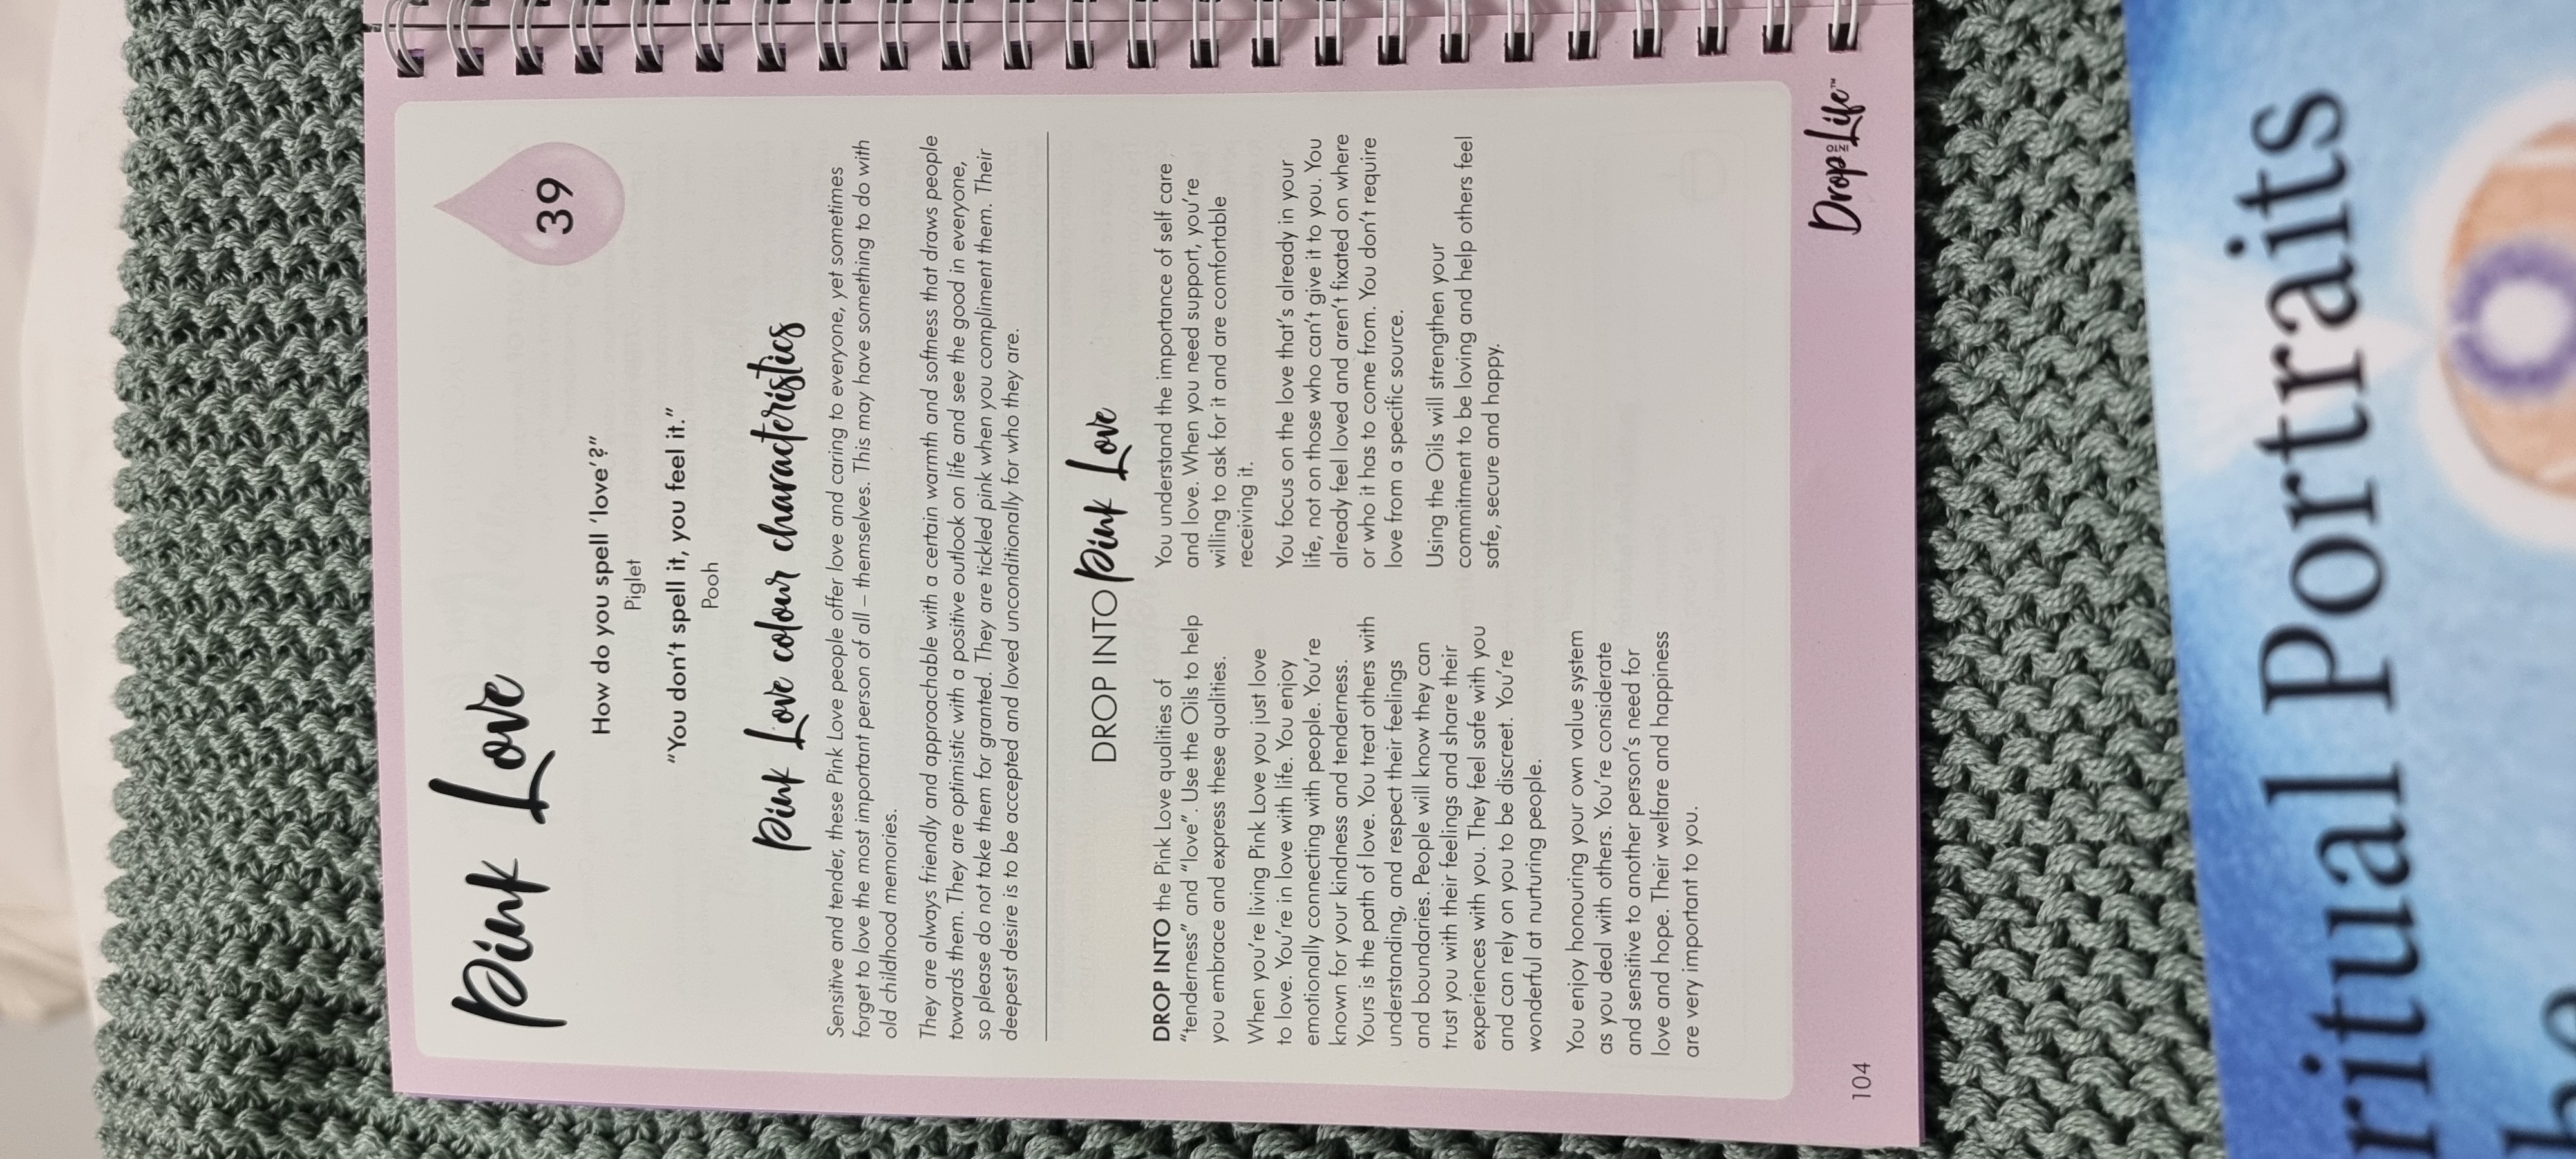 Pink Love
39
How do you spell ‘love’?”
Piglet
“You don’t spell it, you feel it.”
Pooh
Pink Love colour characteristics
Sensitive and tender, these Pink Love people offer love and caring to everyone, yet sometimes
forget to love the most important person of all – themselves. This may have something to do with
old childhood memories.
They are always friendly and approachable with a certain warmth and softness that draws people
towards them. They are optimistic with a positive outlook on life and see the good in everyone,
so please do not take them for granted. They are tickled pink when you compliment them. Their
deepest desire is to be accepted and loved unconditionally for who they are.
DROP INTO Pink Love
DROP INTO the Pink Love qualities of
“tenderness” and “love”. Use the Oils to help
you embrace and express these qualities.
When you’re living Pink Love you just love
to love. You’re in love with life. You enjoy
emotionally connecting with people. You’re
known for your kindness and tenderness.
Yours is the path of love. You treat others with
understanding, and respect their feelings
and boundaries. People will know they can
trust you with their feelings and share their
experiences with you. They feel safe with you
and can rely on you to be discreet. You’re
wonderful at nurturing people.
You enjoy honouring your own value system
as you deal with others. You’re considerate
and sensitive to another person’s need for
love and hope. Their welfare and happiness
are very important to you.
You understand the importance of self care
and love. When you need support, you’re
willing to ask for it and are comfortable
receiving it.
You focus on the love that’s already in your
life, not on those who can’t give it to you. You
already feel loved and aren’t fixated on where
or who it has to come from. You don’t require
love from a specific source.
Using the Oils will strengthen your
commitment to be loving and help others feel
safe, secure and happy.
104
Drop INZIO Life™
ritual Portraits